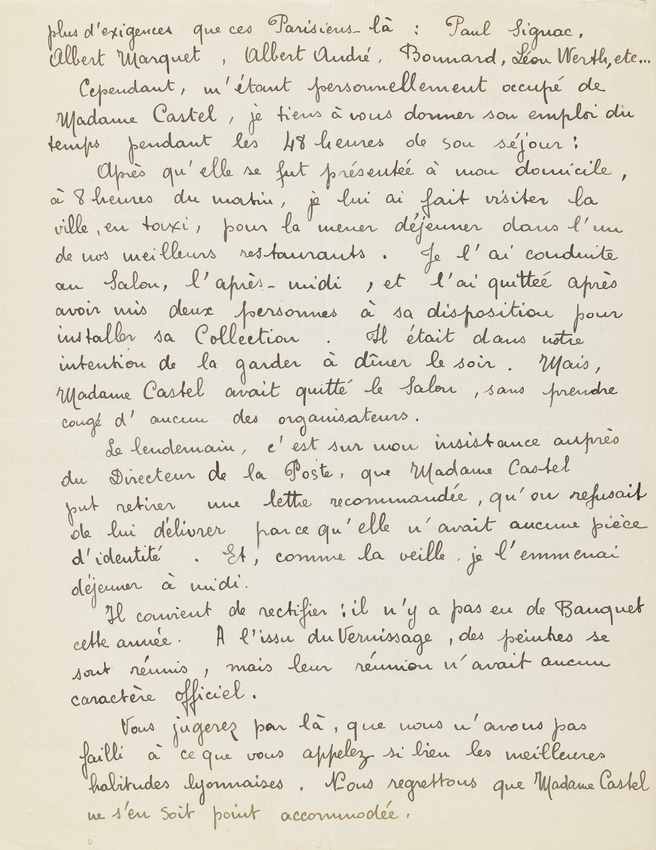 plus d'exigences que ces Parisiens-là : Paul Signac,
Albert Marquet, Albert André, Bonnard, Léon Werth, etc...
Cependant, m'étant personnellement occupé de
Madame Castel, je tiens à vous donner son emploi du
temps pendant les 48 heures de son séjour :
Après qu'elle se fut présenteé à mon domicile,
à 8 heures du matin, je lui ai fait visiter la
ville, en taxi, pour la mener déjeuner dans l'un
de nos meilleurs restaurants. Je l'ai conduite
au Salon, l'après-midi, et l'ai quitteé après
avoir mis deux personnes à sa disposition pour
installer sa Collection. Il était dans notre
intention de la garder à dîner le soir. Mais,
Madame Castel avait quitté le Salon, sans prendre
congé d'aucun des organisateurs.
Le lendemain, c'est sur mon insistance auprès
du Directeur de la Poste, que Madame Castel
put retirer une lettre recommandée, qu'on refusait
de lui délivrer parce qu'elle n'avait aucune pièce
d'identité. Et, comme la veille, je l'emmenai
déjeuner à midi.
Il convient de rectifier : il n'y a pas eu de Banquet
cette année. A l'issu du Vernissage, des peintres se
sont réunis, mais leur réunion n'avait aucun
caractère officiel.
Vous jugerez par là, que nous n'avons pas
failli à ce que vous appelez si bien les meilleures
habitudes lyonnaises. Nous regrettons que Madame Castel
ne s'en soit point accommodée.